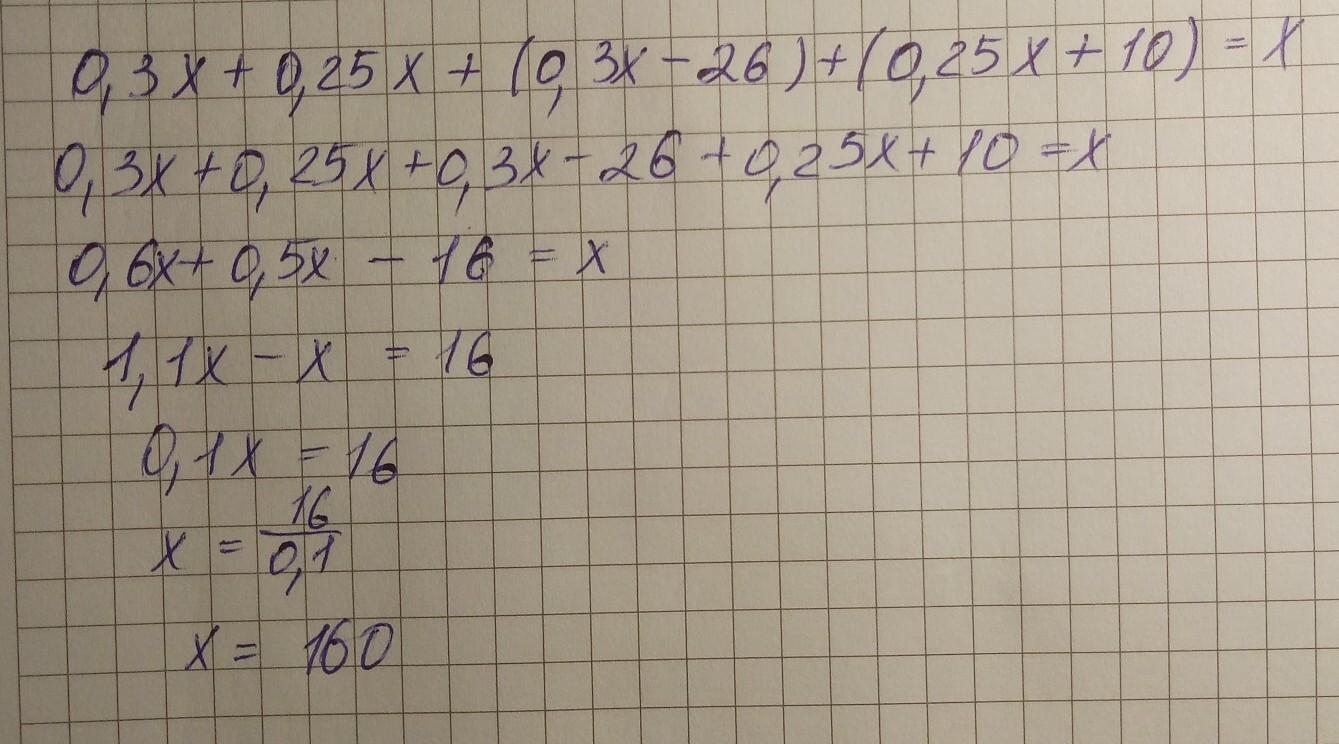 0,3x + 0,25x + (0,3x - 26) + (0,25x + 10) = x
0,3x + 0,25x + 0,3x - 26 + 0,25x + 10 = x
0,6x + 0,5x - 16 = x
1,1x - x = 16
0,1x = 16
x = 16/0,1
x = 160